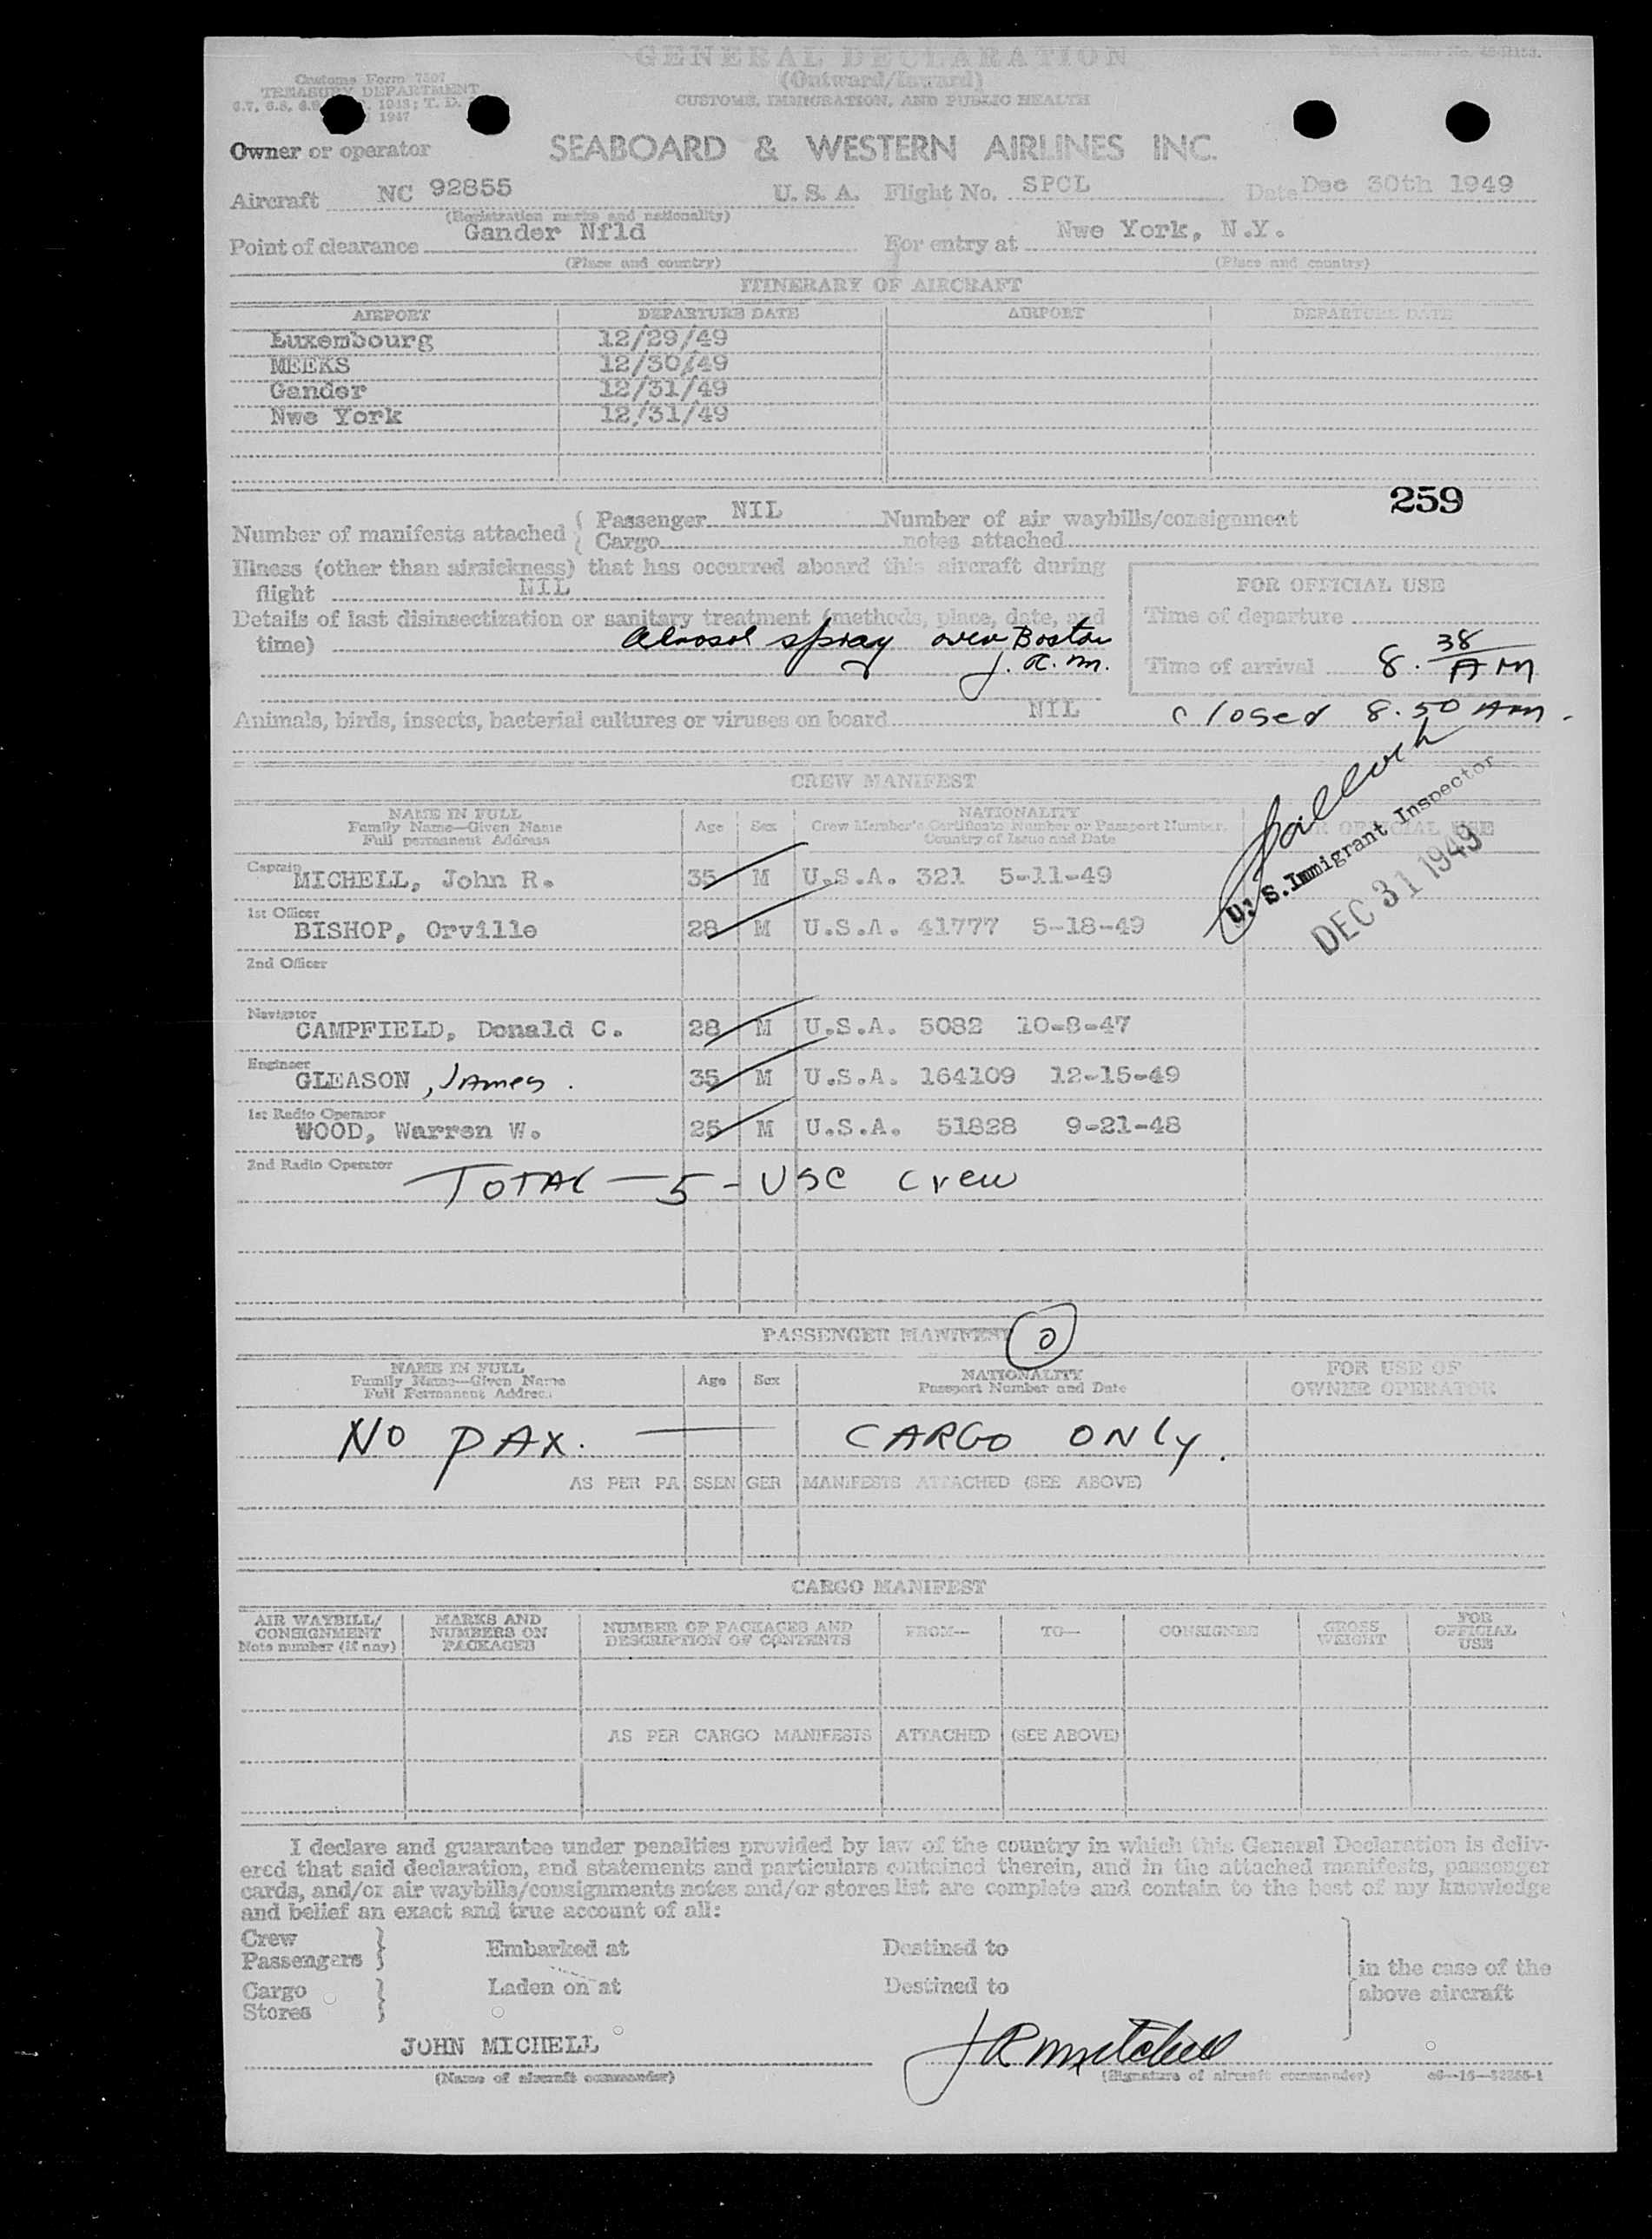 GENERAL DECLARATION
(Outward/Inward)
CUSTOMS, IMMIGRATION, AND PUBLIC HEALTH
Customs Form 7507
TREASURY DEPARTMENT
1947
Owner or operator SEABOARD & WESTERN AIRLINES INC.
Aircraft NC 92855 U. S. A. Flight No. SPCL Date Dec 30th 1949
(Registration marks and nationality)
Point of clearance Gander Nfld For entry at Nwe York, N.Y.
(Place and country) (Place and country)
ITINERARY OF AIRCRAFT
AIRPORT DEPARTURE DATE AIRPORT DEPARTURE DATE
Luxembourg 12/29/49
MEEKS 12/30/49
Gander 12/31/49
Nwe York 12/31/49
259
Number of manifests attached { Passenger NIL Number of air waybills/consignment
Cargo notes attached
Illness (other than airsickness) that has occurred aboard this aircraft during
flight NIL
FOR OFFICIAL USE
Details of last disinsectization or sanitary treatment (methods, place, date, and
time) Aerosol spray over Boston
J. R. M.
Time of departure
Time of arrival 8.38 AM
Animals, birds, insects, bacterial cultures or viruses on board NIL closed 8.50 AM.
CREW MANIFEST
NAME IN FULL
Family Name—Given Name
Full permanent Address
Age Sex
NATIONALITY
Crew Member's Certificate Number or Passport Number.
Country of Issue and Date
FOR OFFICIAL USE
U. S. Immigrant Inspector
DEC 31 1949
Captain
MICHELL, John R. 35 M U.S.A. 321 5-11-49
1st Officer
BISHOP, Orville 28 M U.S.A. 41777 5-18-49
2nd Officer
Navigator
CAMPFIELD, Donald C. 28 M U.S.A. 5082 10-8-47
Engineer
GLEASON, James. 35 M U.S.A. 164109 12-15-49
1st Radio Operator
WOOD, Warren W. 25 M U.S.A. 51828 9-21-48
2nd Radio Operator
TOTAL — 5 - USC Crew
PASSENGER MANIFEST 0
NAME IN FULL
Family Name—Given Name
Full Permanent Address
Age Sex
NATIONALITY
Passport Number and Date
FOR USE OF
OWNER OPERATOR
NO PAX. — CARGO ONLY.
AS PER PASSENGER MANIFESTS ATTACHED (SEE ABOVE)
CARGO MANIFEST
AIR WAYBILL/
CONSIGNMENT
Note number (if any)
MARKS AND
NUMBERS ON
PACKAGES
NUMBER OF PACKAGES AND
DESCRIPTION OF CONTENTS
FROM— TO— CONSIGNEE
GROSS
WEIGHT
FOR
OFFICIAL
USE
AS PER CARGO MANIFESTS ATTACHED (SEE ABOVE)
I declare and guarantee under penalties provided by law of the country in which this General Declaration is deliv-
ered that said declaration, and statements and particulars contained therein, and in the attached manifests, passenger
cards, and/or air waybills/consignments notes and/or stores list are complete and contain to the best of my knowledge
and belief an exact and true account of all:
Crew
Passengers } Embarked at Destined to
Cargo
Stores } Laden on at Destined to
in the case of the
above aircraft
JOHN MICHELL JR Mitchell
(Name of aircraft commander) (Signature of aircraft commander)